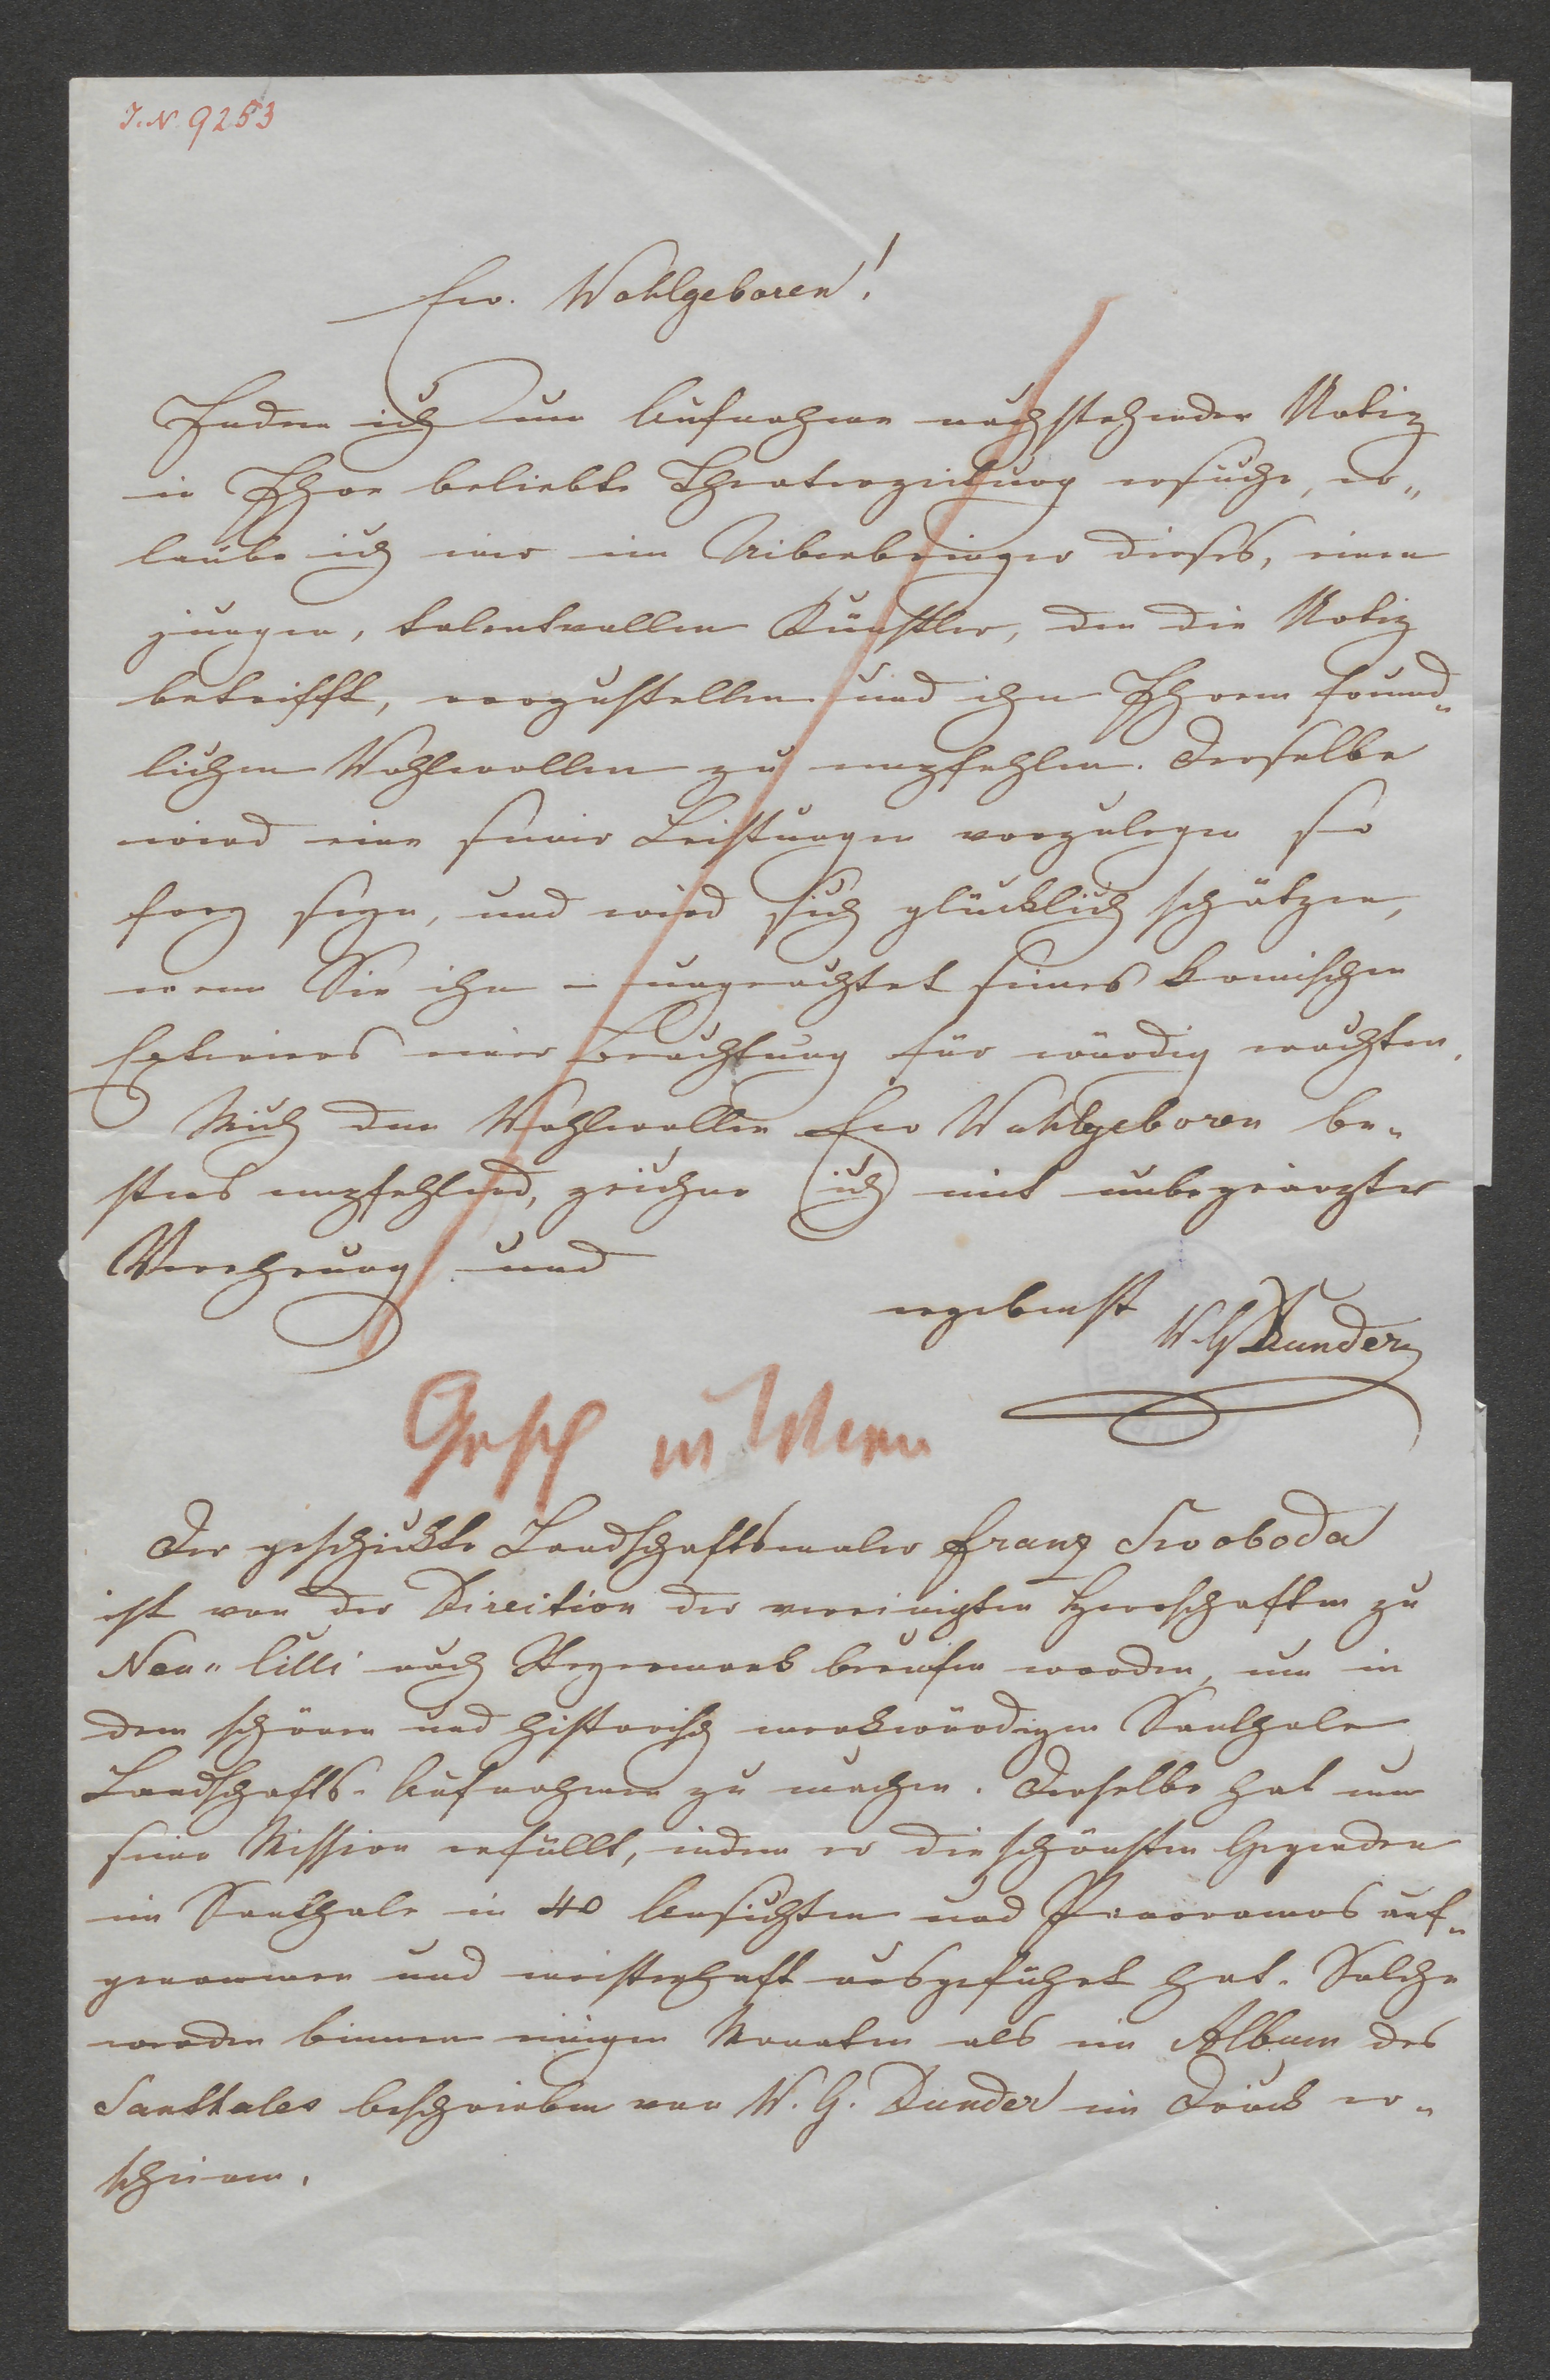 J.N. 9253
Ew. Wohlgeboren!
Indem ich um Aufnahme nachstehender Notiz
in Ihre beliebte Theaterzeitung ersuche, er„
laube ich mir im Uiberbringer dieses, einen
jungen, talentvollen Künstler, den die Notiz
betrifft, vorzustellen und ihn Ihrem freund„
lichen Wohlwollen zu empfehlen. Derselbe
wird eine seiner Leistungen vorzulegen so
frey seyn, und wird sich glücklich schätzen,
wenn Sie ihn – ungeachtet seines komischen
Exterieurs einer Beachtung für würdig erachten.
Mich dem Wohlwollen Ew Wohlgeboren be„
stens empfehlend, zeichne ich mit unbegränzter
Verehrung und
ergebenst W. G Dunder
Gesch in Wien
Der geschickte Landschaftsmaler Franz Swoboda
ist von der Direition der vereinigten Herrschaften zu
Neu„Cilli nach Steyermark berufen worden, um in
dem schönen und historisch merkwürdigen Santhale
Landschafts-Aufnahmen zu machen. Derselbe hat nun
seine Mission erfüllt, indem er die schönsten Gegenden
im Santhale in 40 Ansichten und Panoramas auf„
genommen und meisterhaft ausgeführt hat. Solche
werden binnen einigen Monaten als ein Album des
Santhales beschrieben von W. G. Dunder im Druck er„
scheinen.